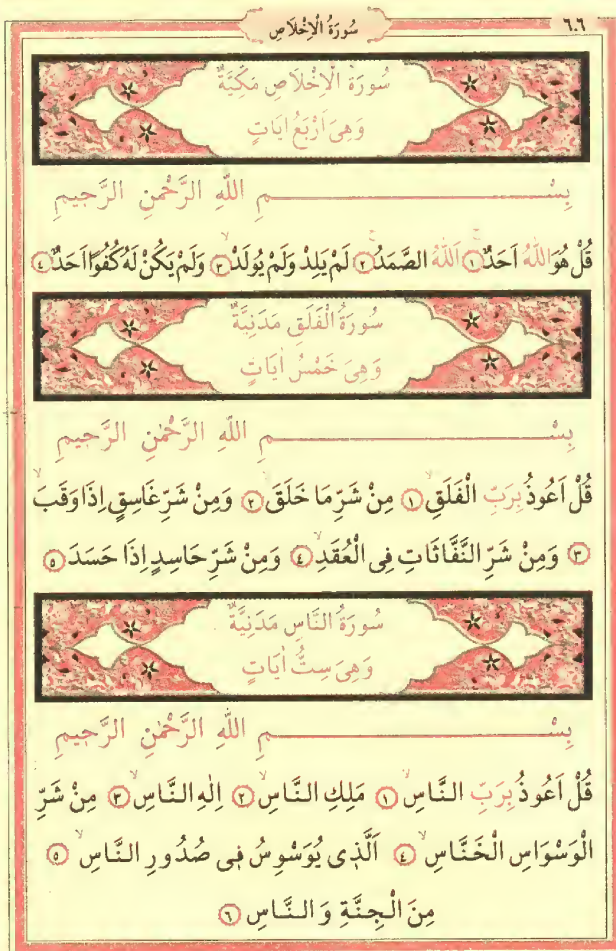 ٦٠٦
سُورَةُ الْاِخْلَاصِ
سُورَةُ الْاِخْلَاصِ مَكِّيَّةٌ
وَهِىَ اَرْبَعُ اٰيَاتٍ
بِسْــــــــمِ اللّٰهِ الرَّحْمٰنِ الرَّحٖيمِ
قُلْ هُوَ اللّٰهُ اَحَدٌۚ ١ اَللّٰهُ الصَّمَدُۚ ٢ لَمْ يَلِدْ وَلَمْ يُولَدْۙ ٣ وَلَمْ يَكُنْ لَهُ كُفُوًا اَحَدٌ ٤
سُورَةُ الْفَلَقِ مَدَنِيَّةٌ
وَهِىَ خَمْسُ اٰيَاتٍ
بِسْــــــــمِ اللّٰهِ الرَّحْمٰنِ الرَّحٖيمِ
قُلْ اَعُوذُ بِرَبِّ الْفَلَقِۙ ١ مِنْ شَرِّ مَا خَلَقَۙ ٢ وَمِنْ شَرِّ غَاسِقٍ اِذَا وَقَبَۙ
٣ وَمِنْ شَرِّ النَّفَّاثَاتِ فِى الْعُقَدِۙ ٤ وَمِنْ شَرِّ حَاسِدٍ اِذَا حَسَدَ ٥
سُورَةُ النَّاسِ مَدَنِيَّةٌ
وَهِىَ سِتُّ اٰيَاتٍ
بِسْــــــــمِ اللّٰهِ الرَّحْمٰنِ الرَّحٖيمِ
قُلْ اَعُوذُ بِرَبِّ النَّاسِۙ ١ مَلِكِ النَّاسِۙ ٢ اِلٰهِ النَّاسِۙ ٣ مِنْ شَرِّ
الْوَسْوَاسِ الْخَنَّاسِۙ ٤ اَلَّذٖى يُوَسْوِسُ فٖى صُدُورِ النَّاسِۙ ٥
مِنَ الْجِنَّةِ وَ النَّاسِ ٦